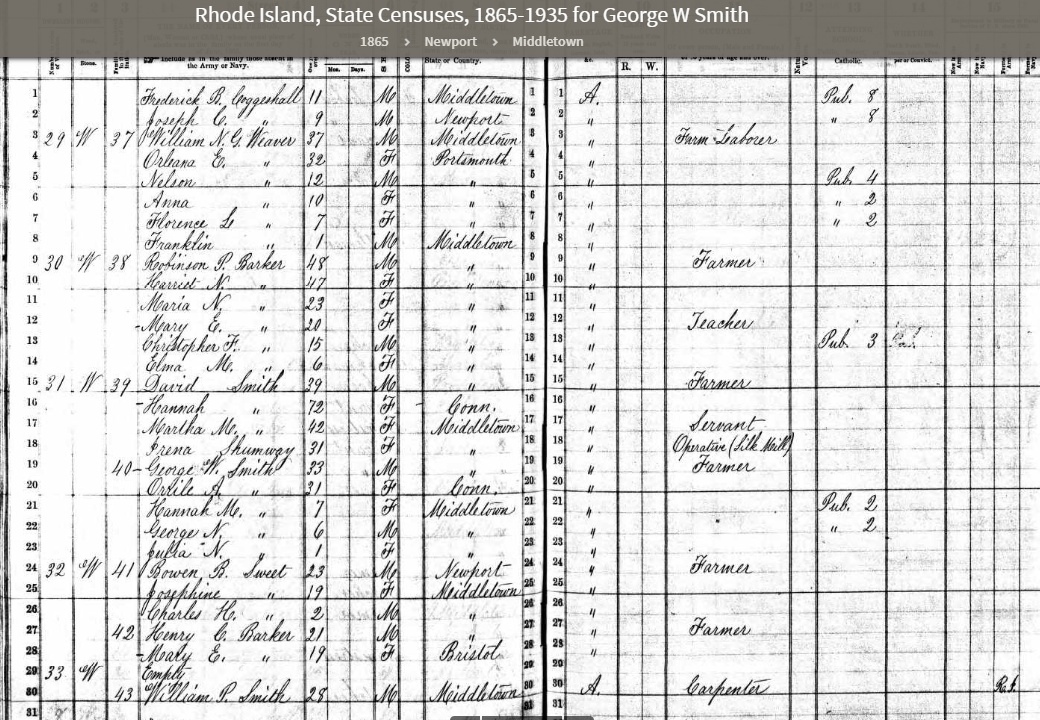 Rhode Island, State Censuses, 1865-1935 for George W Smith
1865 > Newport > Middletown
the Army or Navy. Mos. Days. State or Country. &c. R. W. Catholic.
1 Frederick B. Coggeshall 11 M Middletown 1 A. Pub. 8
2 Joseph C. " 9 M Newport 2 " " 8
3 29 W 37 William N. G. Weaver 37 M Middletown 3 " Farm Laborer
4 Orleana E. " 32 F Portsmouth 4 "
5 Nelson " 12 M " 5 " Pub. 4
6 Anna " 10 F " 6 " " 2
7 Florence L " 7 F " 7 " " 2
8 Franklin " 1 M Middletown 8 "
9 30 W 38 Robinson P. Barker 48 M " 9 " Farmer
10 Harriet N. " 47 F " 10 "
11 Maria N. " 23 F " 11 "
12 Mary E. " 20 F " 12 " Teacher
13 Christopher F. " 15 M " 13 " Pub. 3
14 Elma M. " 6 F " 14 "
15 31 W 39 David Smith 39 M " 15 " Farmer
16 Hannah " 72 F Conn. 16 "
17 Martha M. " 42 F Middletown 17 " Servant
18 Irena Shumway 31 F " 18 " Operative (Silk Mill)
19 40 George W. Smith 33 M " 19 " Farmer
20 A. " 31 F Conn. 20 "
21 Hannah M. " 7 F Middletown 21 " Pub. 2
22 George N. " 6 M " 22 " " 2
23 Julia N. " 1 F " 23 "
24 32 W 41 Bowen B. Sweet 23 M Newport 24 " Farmer
25 Josephine " 19 F Middletown 25 "
26 Charles H. " 2 M " 26 "
27 42 Henry C. Barker 21 M " 27 " Farmer
28 Mary E. " 19 F Bristol 28 "
29 33 W Empty 29
30 43 William P. Smith 28 M Middletown 30 A. Carpenter R.I.
31 31